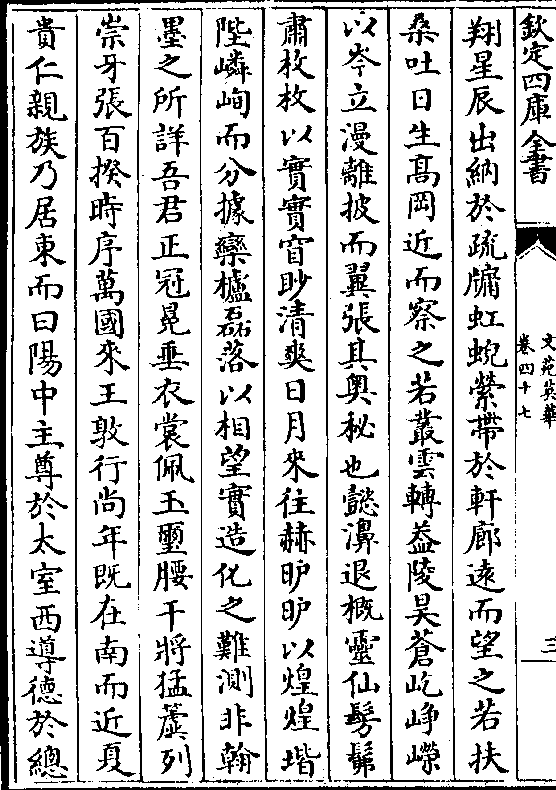 欽定四庫全書
文苑英華
卷四十七
三
翔星辰出納於疏牖虹蜺縈帶於軒廊遠而望之若扶
桑吐日生髙岡近而察之若叢雲轉葢陵昊蒼屹崢嶸
以岑立漫離披而翼張其奥秘也懿濞退概靈仙髣髴
肅枚枚以實實窅眇清爽日月來往赫昈昈以煌煌堦
陛嶙峋而分據欒櫨磊落以相望實造化之難測非翰
墨之所詳吾君正冠冕垂衣裳佩玉璽腰干將猛虡列
崇牙張百揆時序萬國來王敦行尚年既在南而近夏
貴仁親族乃居東而曰陽中主尊於太室西導德於總